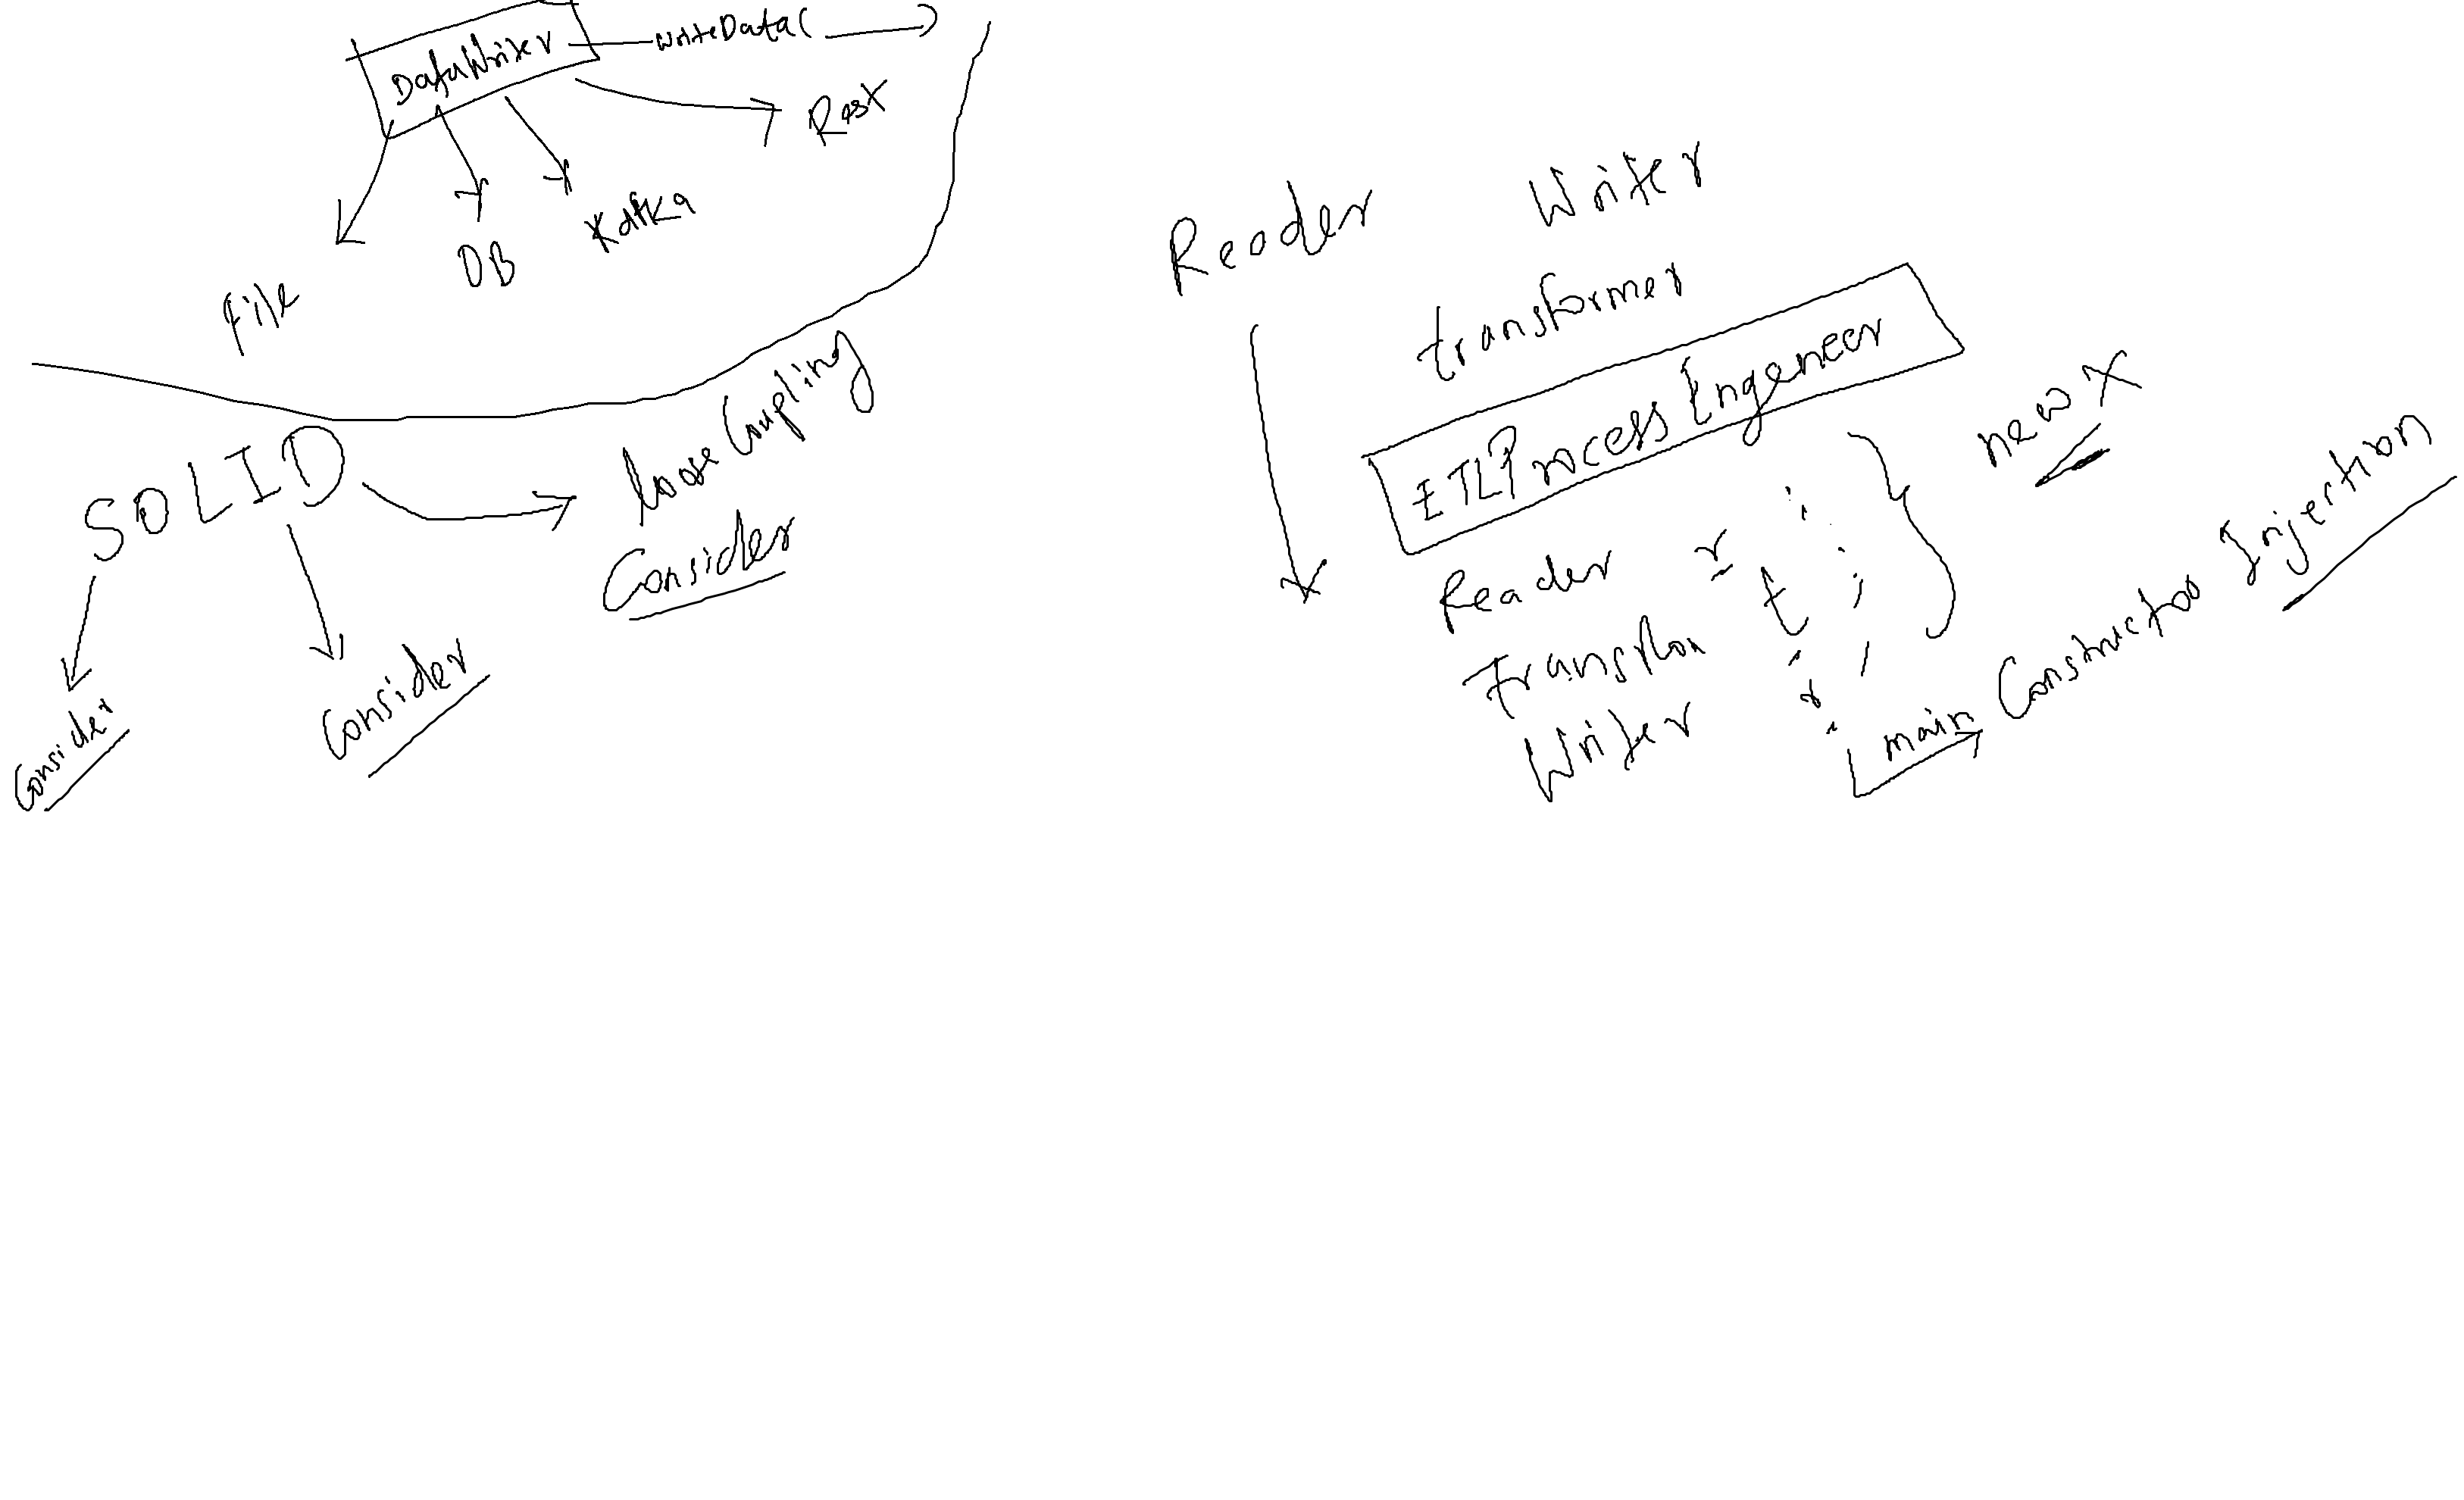 DataWriter
writeData( )
File
DB
Kafka
SOLID
Loose Coupling
Consider
Consider
Consider
Reader
Writer
transformer
ETLProcess Engeneer
Reader r ;
t ;
Writer
new X
main
Constructor Injection